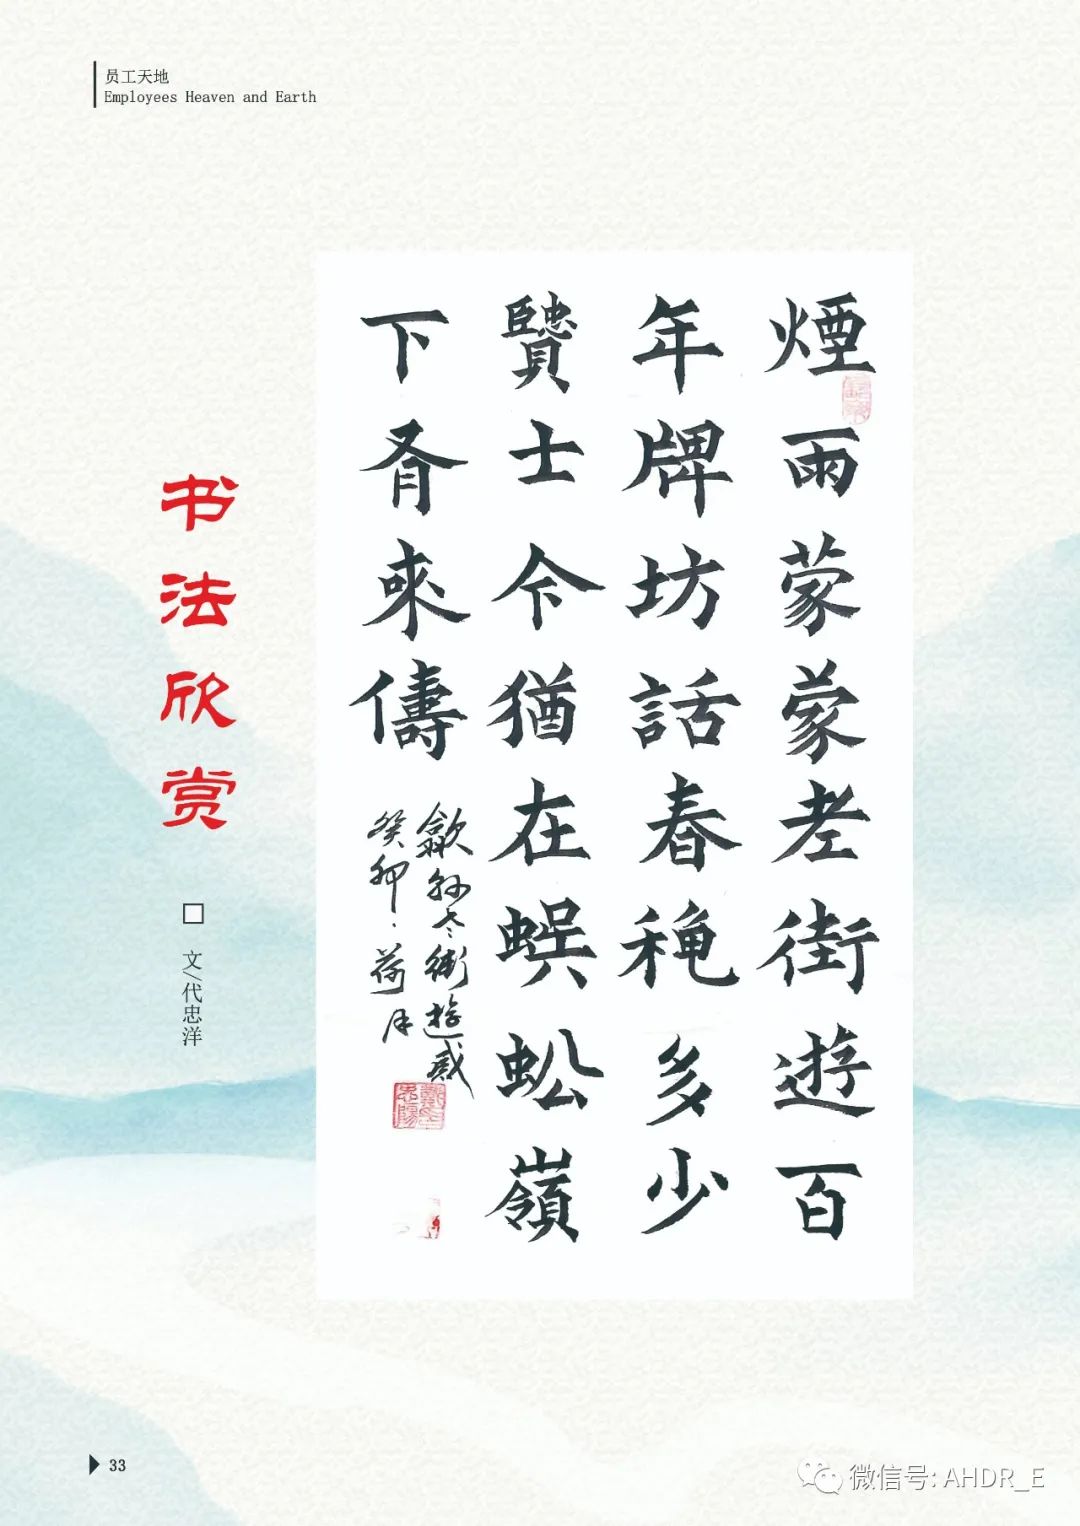 员工天地
Employees Heaven and Earth
书法欣赏
文/代忠洋
煙雨蒙蒙老街遊百
年牌坊話春穐多少
贒士今猶在蜈蚣嶺
下來儔
歙老街遊感
癸卯荷月
33
微信号: AHDR_E